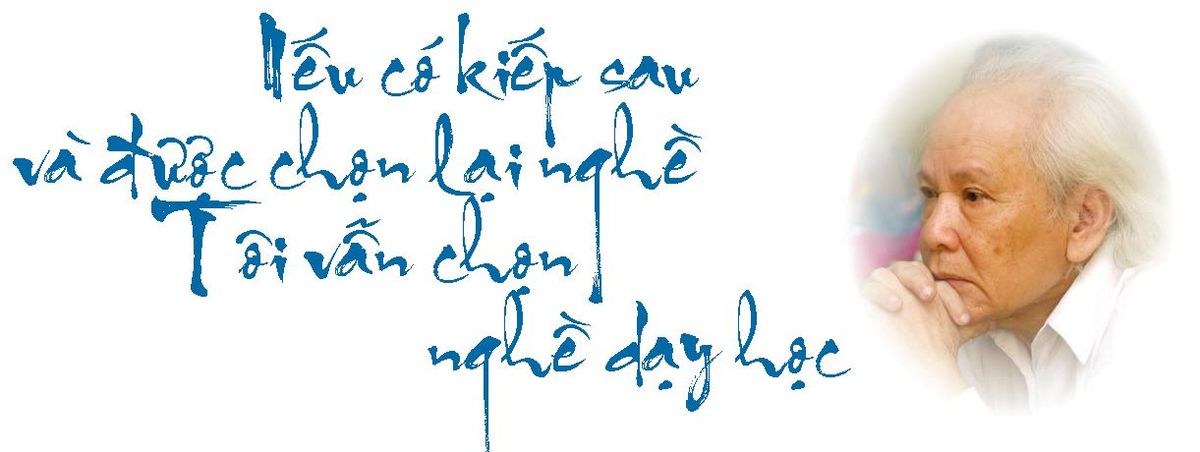 Nếu có kiếp sau
và được chọn lại nghề
Tôi vẫn chọn
nghề dạy học